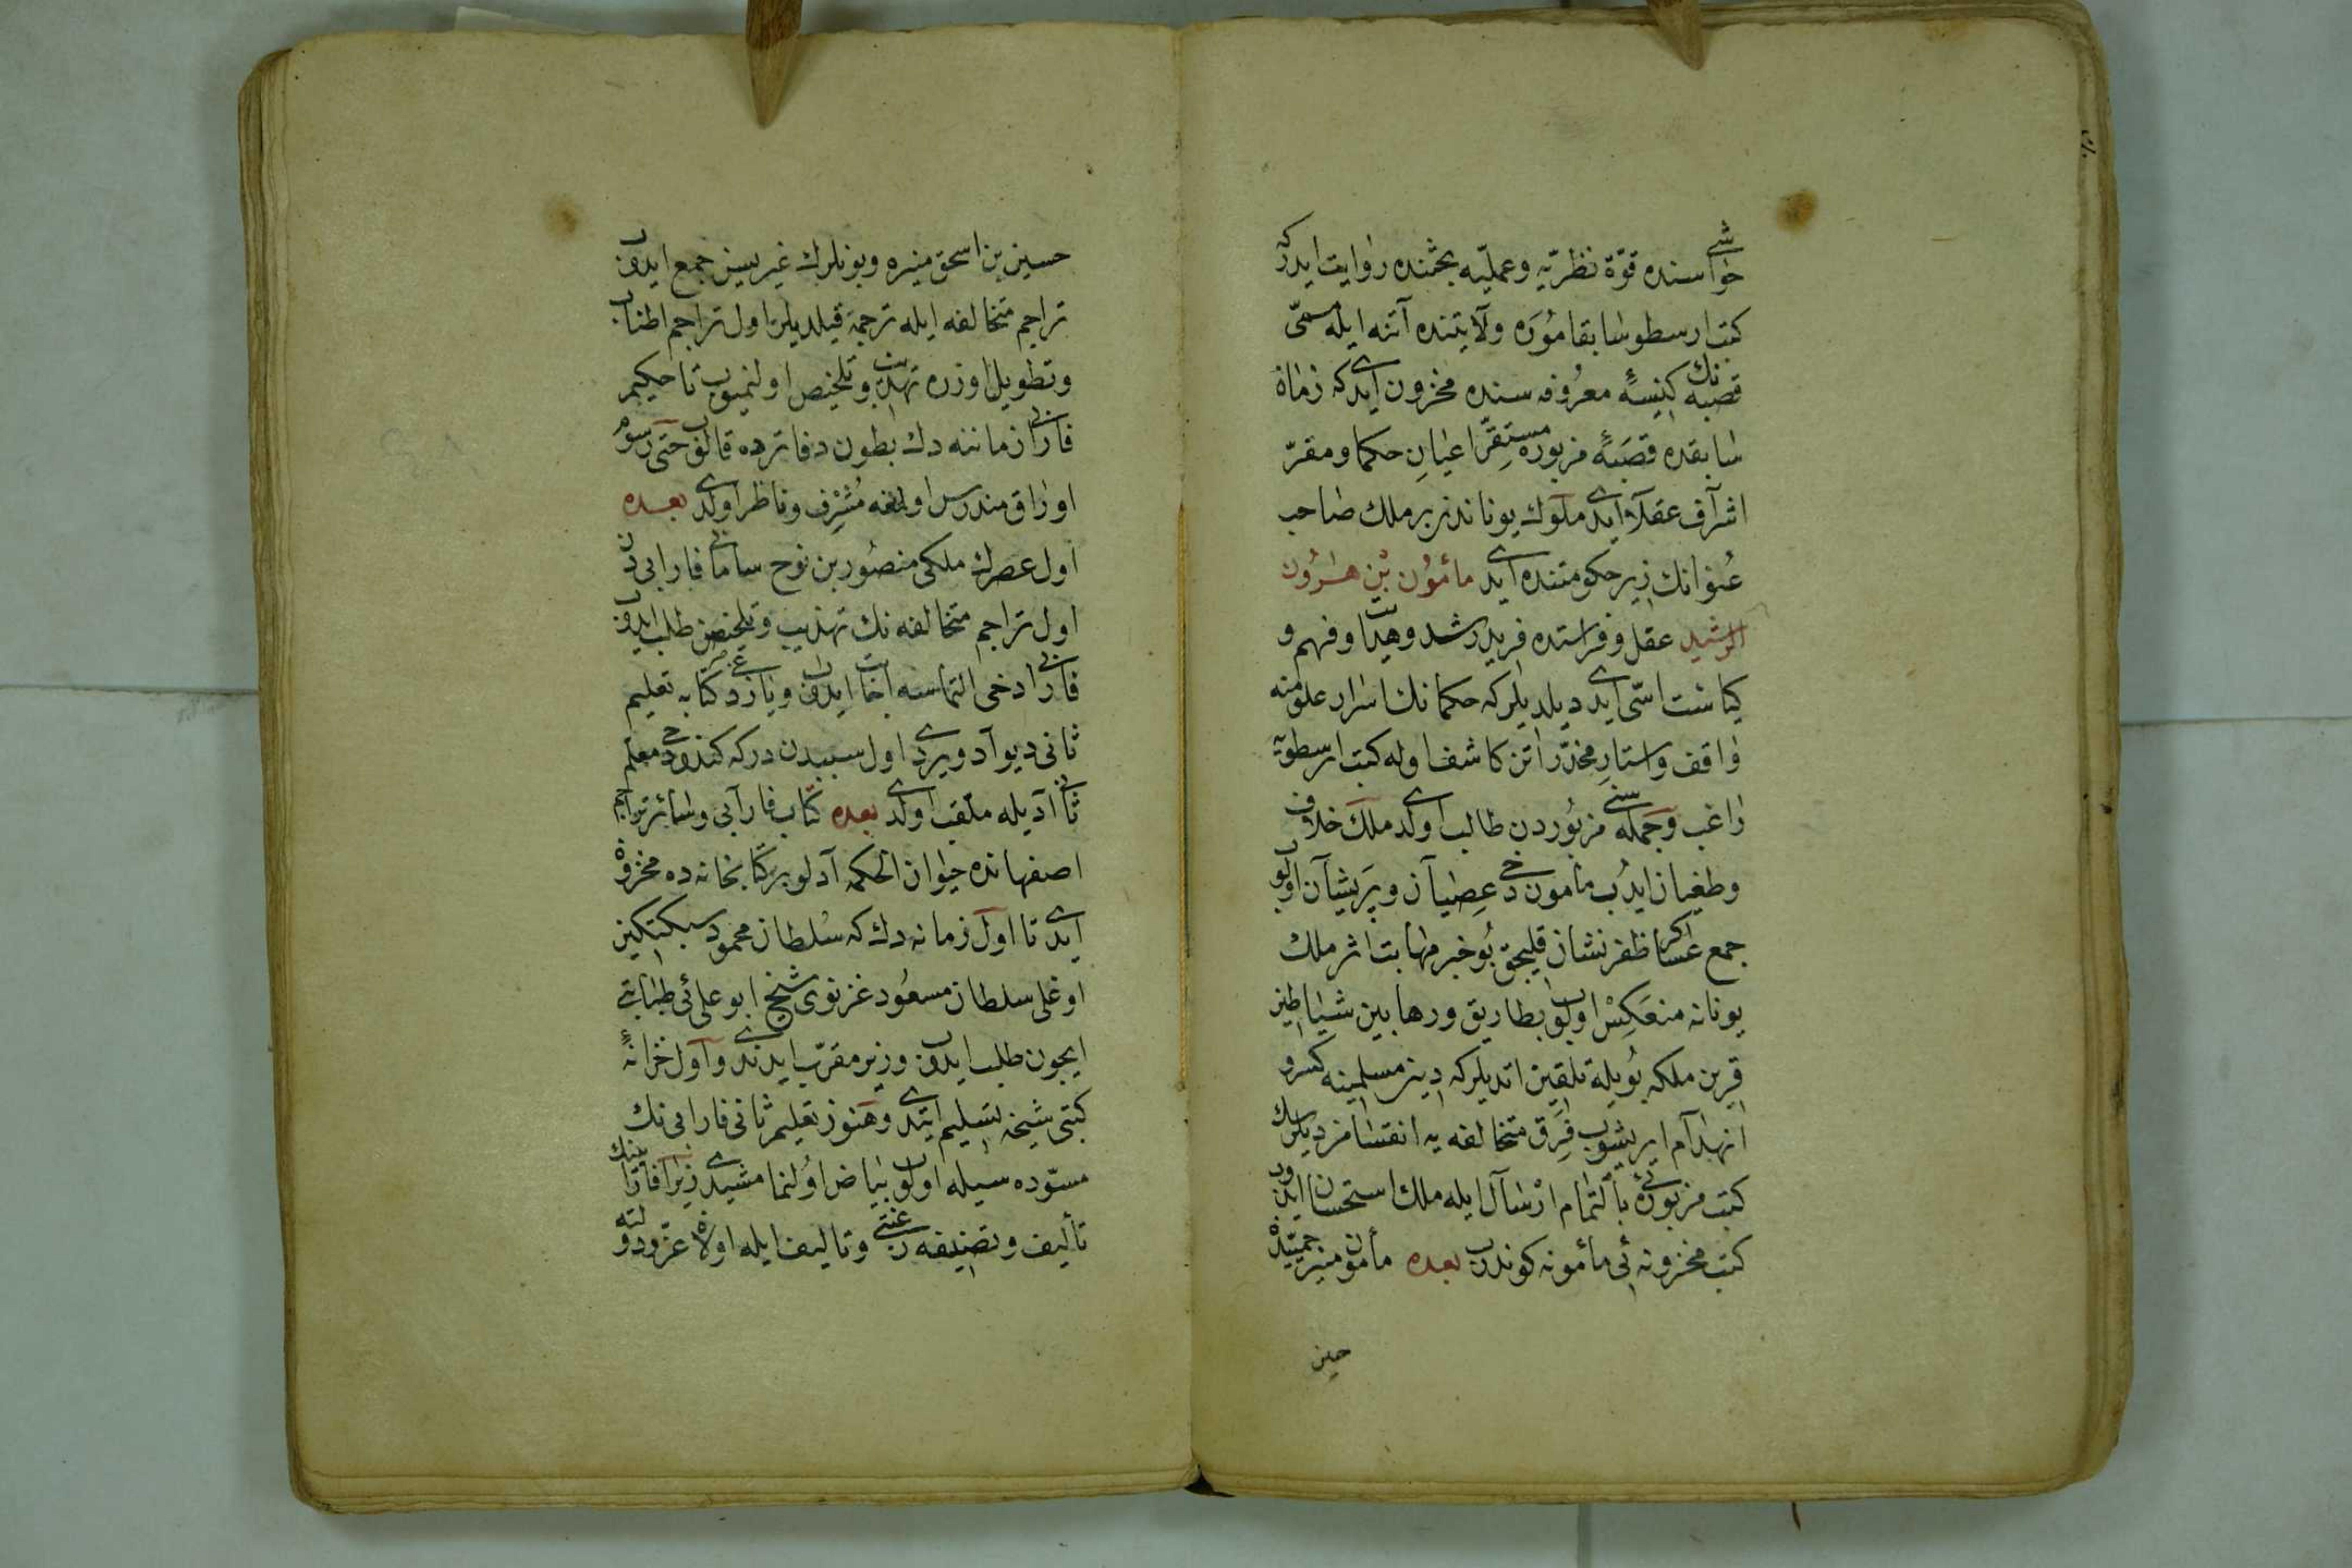 حواشیسنده قوّة نظریّه وعملیّه بحثنده روایت ایدرکه
کتب ارسطو سابقا مُوَره ولآیتنده آتنه ایله مسمّی
قصبه نك کنیسهٔ معرُوفه سنده مخزون ایدی که زمان
سابقده قصبَهٔ مزبوره مستقِرّ اعیانِ حکما ومقرّ
اشرآف عقلآ ایدی ملوك یوناندن بر ملك صاحب
عُنوانك زیر حکومتنده ایدی مأمُون بْن هٰرُون
الرّشید عقل وفراستده فرید رشد وهدایت وفهم و
کیاستده ایدی دیلدیلر که حکمانك اسرار علومنه
واقف واستارِ مخدّراتن کاشف اوله کتب ارسطویه
راغب وجمله سنی مزبُوردن طالب اولدی ملك خلاف
وطغیان ایدُب مأمون دخی عِصیآن وپَریشآن اولوب
جمع عساکر ظفر نشان قلیجق بُو خبر مهابت اثر ملك
یونانه منعَکِسْ اولوب بطاریق ورهابین شیاطین
قرین ملکه بُویله تلقین اتدیلر که دین مسلمینه کسر و
انهدآم ایریشوب فِرَق متخالفه یه انقسامن دیلرسك
کتب مزبورهٔ بالتّمام ارْسآل ایله ملك استحسان ایدوب
کتب مخزونه ئی مأمونه کوندردی بعده مأمون
حسین
حسین بن اسحق وبونلرك غیریسین جمع ایدوب
تراجم متخالفه ایله ترجمة قیلدیلر اول تراجم اطناب
وتطویل اوزره تهذیب وتلخیص اولنمیوب تا حکیم
فارابی زماننه دك بطون دفاترده قالوب حتّی رسوم
اوراق مندرس اولمغه مُشْرِف وناظر اولدی بعده
اول عصرك ملکی منصُور بن نوح سامانی فارابی دن
اول تراجم متخالفه نك تهذیب وتلخیصن طلب ایدوب
فارابی دخی التماسنه اجابت ایدوب ویازدغی کتابه تعلیم
ثانی دیو آد ویردی اول سببدن در که کندو دخی معلّم
ثانی آدیله ملقّب اولدی بعده کتاب فارآبی وسائر تراجم
اصفهانده حیوان الحکمه آدلو بر کتابخانه ده مخزون
ایدی تا اول زمانه دك که سُلطان محمود سبکتکین
اوغلی سلطان مسعُود غزنوی شیخ ابو علی ئی طبابتی
ایچون طلب ایدوب وزیر مقرّب ایدندی وآول خزانهٔ
کتبی شیخه تسلیم ایتدی وهنوز تعلیم ثانی فارابی نك
مسوّده سیله اولوب بیاض اولنمامشیدی زیرا فارابینك
تألیف وتصنیفه رغبتی وتالیف ایله اولان